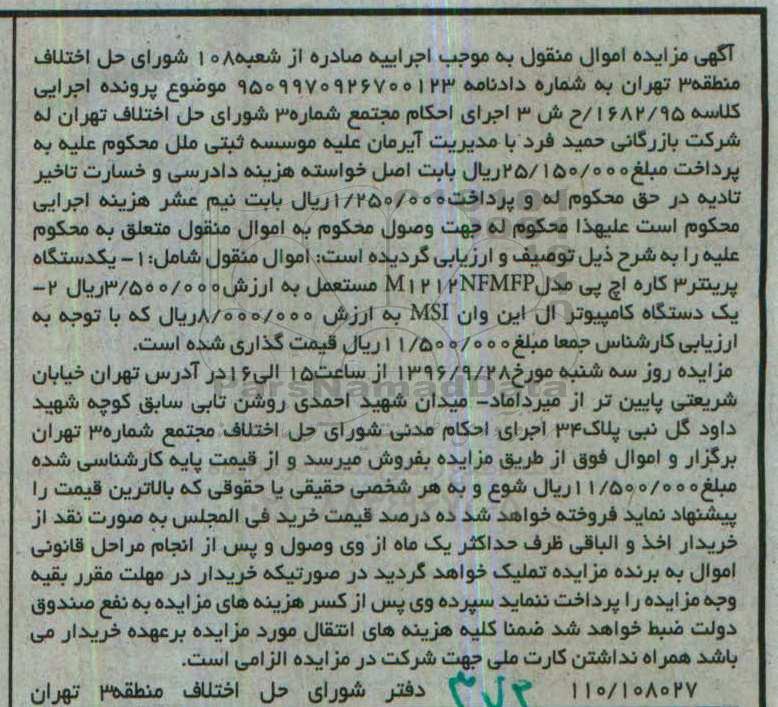 آگهی مزایده اموال منقول به موجب اجراییه صادره از شعبه۱۰۸ شورای حل اختلاف
منطقه۳ تهران به شماره دادنامه ۹۵۰۹۹۷۰۹۲۶۷۰۰۱۲۳ موضوع پرونده اجرایی
کلاسه ۱۶۸۲/۹۵/ح ش ۳ اجرای احکام مجتمع شماره۳ شورای حل اختلاف تهران له
شرکت بازرگانی حمید فرد با مدیریت آیرمان علیه موسسه ثبتی ملل محکوم علیه به
پرداخت مبلغ۲۵/۱۵۰/۰۰۰ریال بابت اصل خواسته هزینه دادرسی و خسارت تاخیر
تادیه در حق محکوم له و پرداخت۱/۲۵۰/۰۰۰ریال بابت نیم عشر هزینه اجرایی
محکوم است علیهذا محکوم له جهت وصول محکوم به اموال منقول متعلق به محکوم
علیه را به شرح ذیل توصیف و ارزیابی گردیده است: اموال منقول شامل:۱- یکدستگاه
پرینتر۳ کاره اچ پی مدلM۱۲۱۲NFMFP مستعمل به ارزش۳/۵۰۰/۰۰۰ریال ۲-
یک دستگاه کامپیوتر ال این وان MSI به ارزش ۸/۰۰۰/۰۰۰ریال که با توجه به
ارزیابی کارشناس جمعا مبلغ۱۱/۵۰۰/۰۰۰ریال قیمت گذاری شده است.
مزایده روز سه شنبه مورخ۱۳۹۶/۹/۲۸ از ساعت۱۵ الی۱۶در آدرس تهران خیابان
شریعتی پایین تر از میرداماد- میدان شهید احمدی روشن تابی سابق کوچه شهید
داود گل نبی پلاک۳۴ اجرای احکام مدنی شورای حل اختلاف مجتمع شماره۳ تهران
برگزار و اموال فوق از طریق مزایده بفروش میرسد و از قیمت پایه کارشناسی شده
مبلغ۱۱/۵۰۰/۰۰۰ریال شوع و به هر شخصی حقیقی یا حقوقی که بالاترین قیمت را
پیشنهاد نماید فروخته خواهد شد ده درصد قیمت خرید فی المجلس به صورت نقد از
خریدار اخذ و الباقی ظرف حداکثر یک ماه از وی وصول و پس از انجام مراحل قانونی
اموال به برنده مزایده تملیک خواهد گردید در صورتیکه خریدار در مهلت مقرر بقیه
وجه مزایده را پرداخت ننماید سپرده وی پس از کسر هزینه های مزایده به نفع صندوق
دولت ضبط خواهد شد ضمنا کلیه هزینه های انتقال مورد مزایده برعهده خریدار می
باشد همراه نداشتن کارت ملی جهت شرکت در مزایده الزامی است.
۱۱۰/۱۰۸۰۲۷ دفتر شورای حل اختلاف منطقه۳ تهران
ParsNamadData